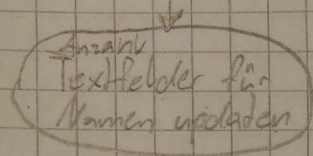 Anzahl
Textfelder für
Namen updaten